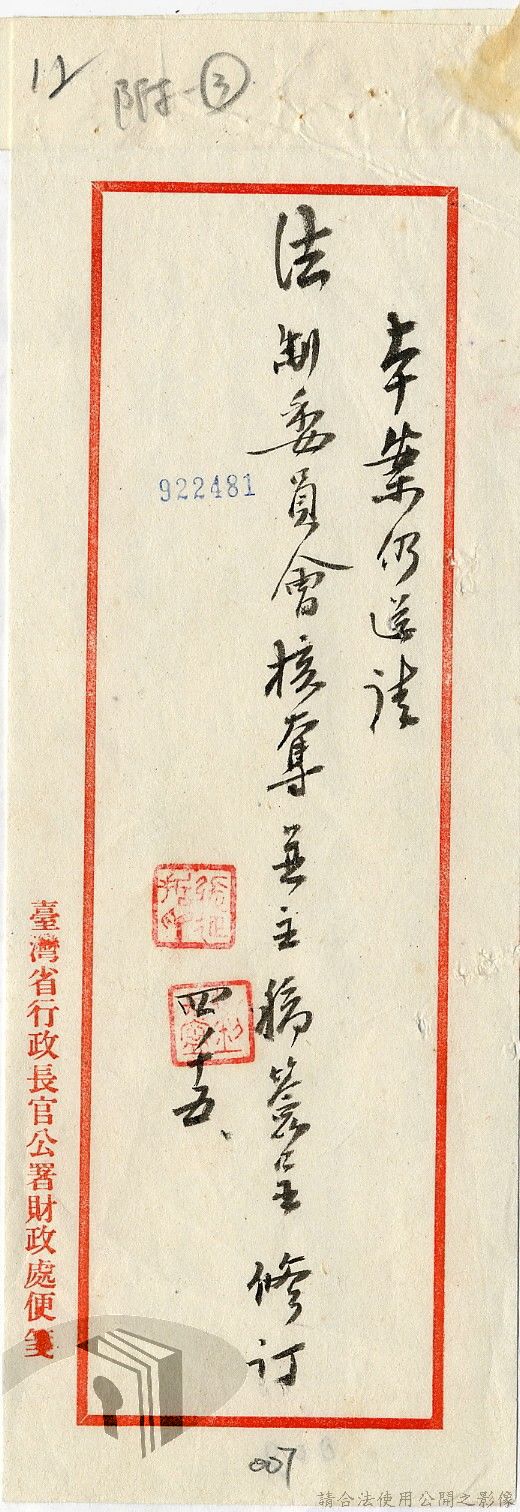 12
附-③
本案仍送請
法制委員會核奪並主稿簽呈 修订
922481
四、十五、
臺灣省行政長官公署財政處便箋
007
請合法使用公開之影像